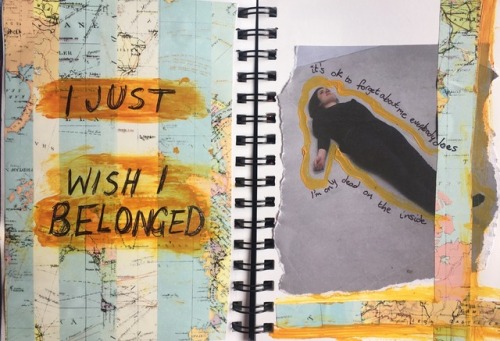 I JUST
WISH I
BELONGED
it's ok to forget about me everybody does
I'm only dead on the inside